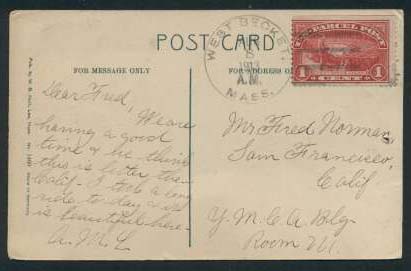 POST CARD
FOR MESSAGE ONLY
WEST BECKET
1913
A.M.
MASS.
U.S. PARCEL POST
1 CENT 1
Dear Fred, We are
having a good
time & he thinks
this is better than
Calif. I took a long
ride to-day & it
is beautiful here.
A. M. L.
Mr Fred Norman,
San Francisco,
Calif
Y. M. C. A. Bldg
Room